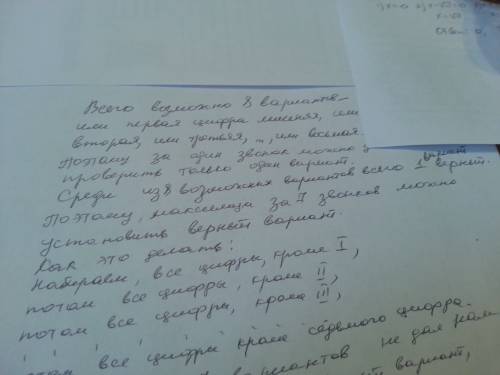 Всего возможно 8 вариантов –
или первая цифра лишняя, или
вторая, или третья, ..., или восьмая.
Поэтому за один звонок можно
проверить только один вариант.
Среди из 8 возможных вариантов всего 1 вариант верный.
Поэтому, максимум за 7 звонков можно
установить верный вариант.
Как это делать:
Набираем, все цифры, кроме I,
потом все цифры, кроме II,
потом все цифры, кроме III,
все цифры кроме седьмого цифра.
не дал нам
вариант,